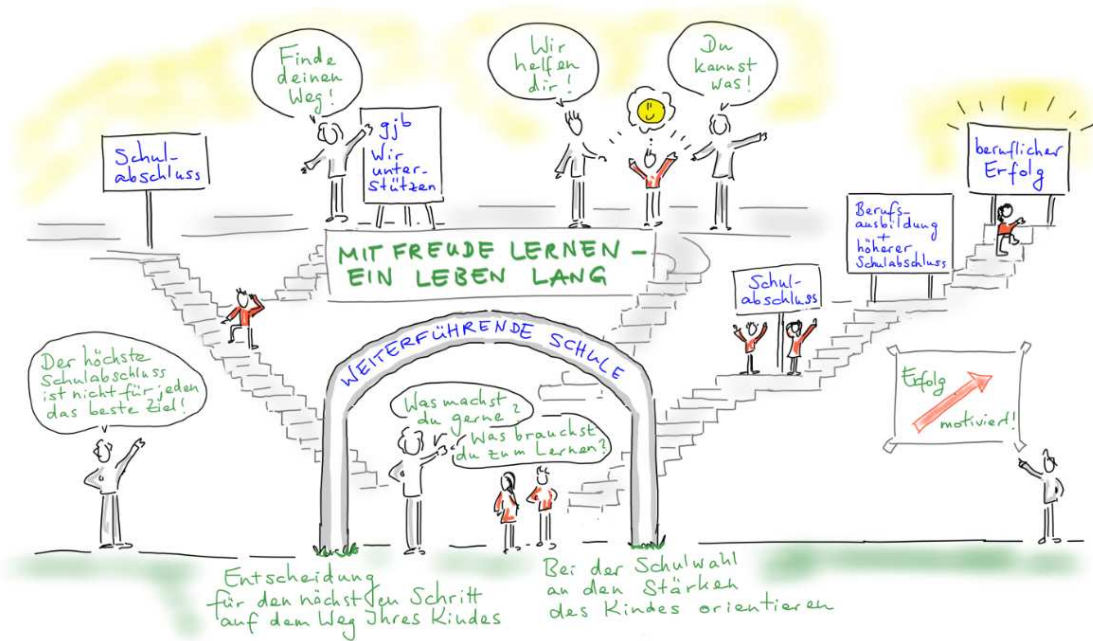 Finde
deinen
Weg!
Wir
helfen
dir!
Du
kannst
was!
Schul-
abschluss
gjb
Wir
unter-
stützen
beruflicher
Erfolg
Berufs-
ausbildung
+
höherer
Schulabschluss
MIT FREUDE LERNEN –
EIN LEBEN LANG
Schul-
abschluss
WEITERFÜHRENDE SCHULE
Der höchste
Schulabschluss
ist nicht für jeden
das beste Ziel!
Was machst
du gerne?
Was brauchst
du zum Lernen?
Erfolg
motiviert!
Entscheidung
für den nächsten Schritt
auf dem Weg Ihres Kindes
Bei der Schulwahl
an den Stärken
des Kindes orientieren